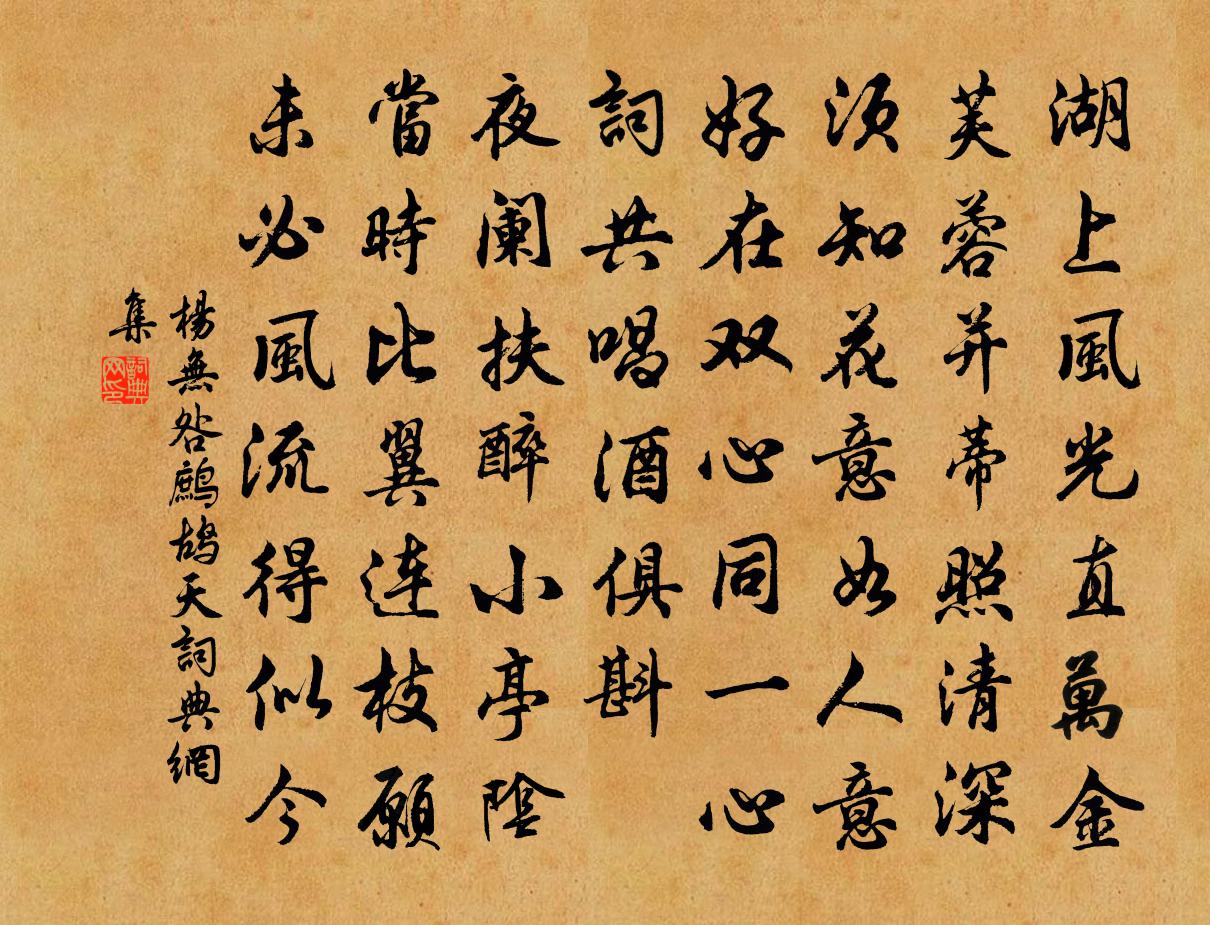 湖上風光直萬金
芙蓉并蒂照清深
須知花意如人意
好在双心同一心
詞共唱酒俱斟
夜阑扶醉小亭陰
當時比翼連枝願
未必風流得似今
楊無咎鷓鴣天詞典網
集
詞典
网印